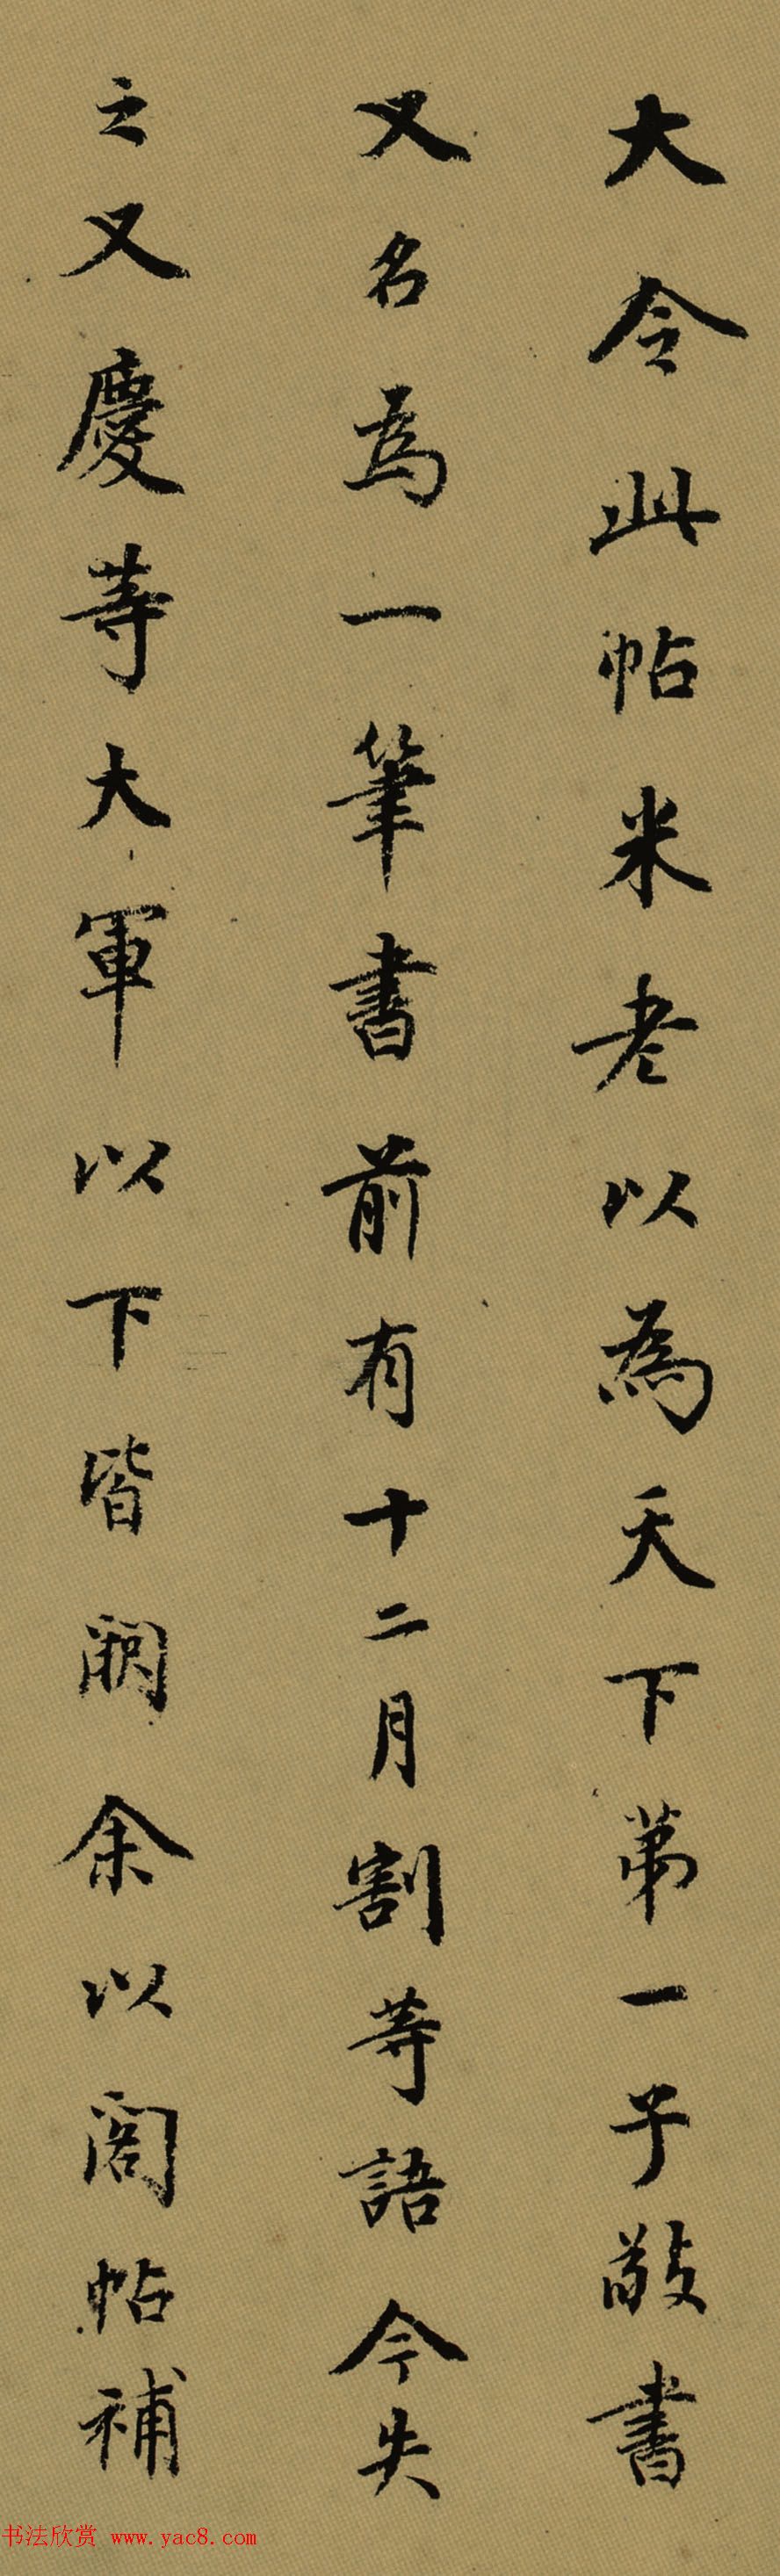 大令此帖米老以為天下第一子敬書
又名為一筆書前有十二月割等語今失
之又慶等大軍以下皆闕余以閣帖補
书法欣赏 www.yac8.com